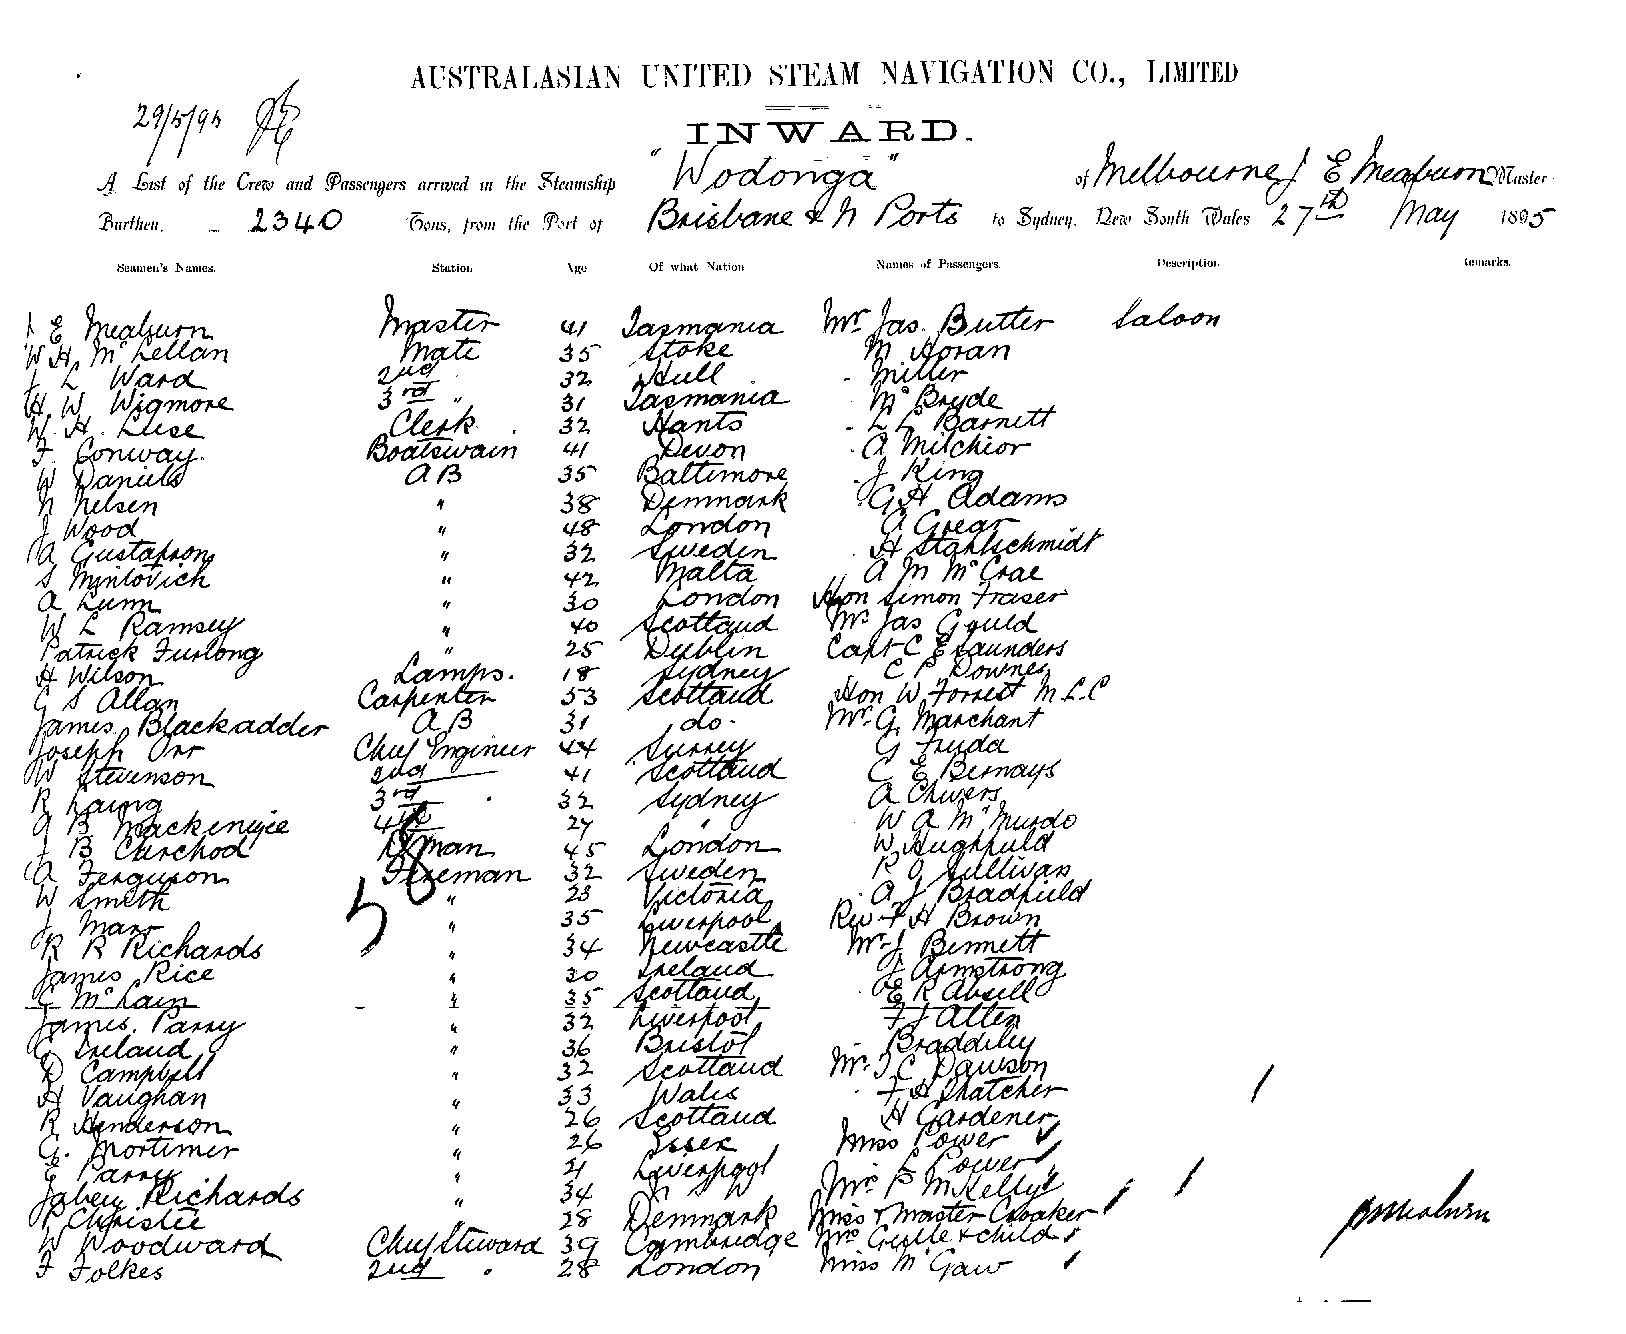 AUSTRALASIAN UNITED STEAM NAVIGATION CO., LIMITED
29/5/95
INWARD.
A List of the Crew and Passengers arrived in the Steamship "Wodonga" of Melbourne J E Meaburn Master
Burthen, 2340 Tons, from the Port of Brisbane & N Ports to Sydney, New South Wales 27th May 1895
Seamen's Names. Station Age Of what Nation Names of Passengers. Description. Remarks.
J E Meaburn Master 41 Tasmania Mr Jas. Butter Saloon
W H McLellan Mate 35 Stoke M Horan
J L Ward 2nd 32 Hull Miller
H W Wigmore 3rd " 31 Tasmania McBryde
W. H. Luse Clerk 32 Hants L L Barnett
F. Conway. Boatswain 41 Devon A Milchior
W Daniels A B 35 Baltimore J King
N Nelsen " 38 Denmark G H Adams
J Wood " 48 London A Grear
A Gustafson " 32 Sweden H Stahlschmidt
S Mintovich " 42 Malta A M McCrae
A Lunn " 30 London Hon Simon Fraser
W L Ramsey " 40 Scotland Mr Jas Gould
Patrick Furlong " 25 Dublin Capt C E Saunders
H Wilson Lamps. 18 Sydney C P Downes
G S Allan Carpenter 53 Scotland Hon W Forrest M L C
James Blackadder A B 31 do. Mr G. Marchant
Joseph Orr Chief Engineer 44 Surrey G Fruda
W Stevenson 2nd 41 Scotland C E Bernays
R Laing 3rd 32 Sydney A Chivers
A B Mackenzie 4th 27 " W A McMurdo
J B Curchod D'man 45 London W Highfield
A Ferguson Fireman 32 Sweden R O Sullivan
W Smith " 28 Victoria A J Bradfield
J Marr " 35 Liverpool Rev F H Brown
R R Richards " 34 Newcastle Mr J Bennett
James Rice " 30 Ireland J Armstrong
C McLain " 35 Scotland E R Absell
James Parry " 32 Liverpool F J Allen
G Ireland " 36 Bristol Braddiley
D Campbell " 32 Scotland Mr J C Dawson
H Vaughan " 33 Wales F H Thatcher
R Henderson " 26 Scotland H Gardener
G. Mortimer " 26 Essex Miss Power
E Parry " 21 Liverpool L Power
Jabez Richards " 34 N S W Mrs P McKelly
P Christie 28 Denmark Miss & Master Croaker
W Woodward Chief Steward 39 Cambridge Mrs & child
F Folkes 2nd " 28 London Miss McGaw
J E Meaburn